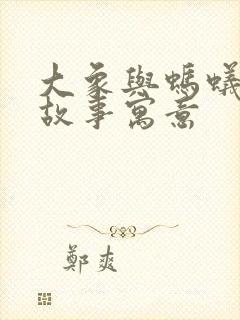 大象與螞蟻
故事寓意
鄭爽